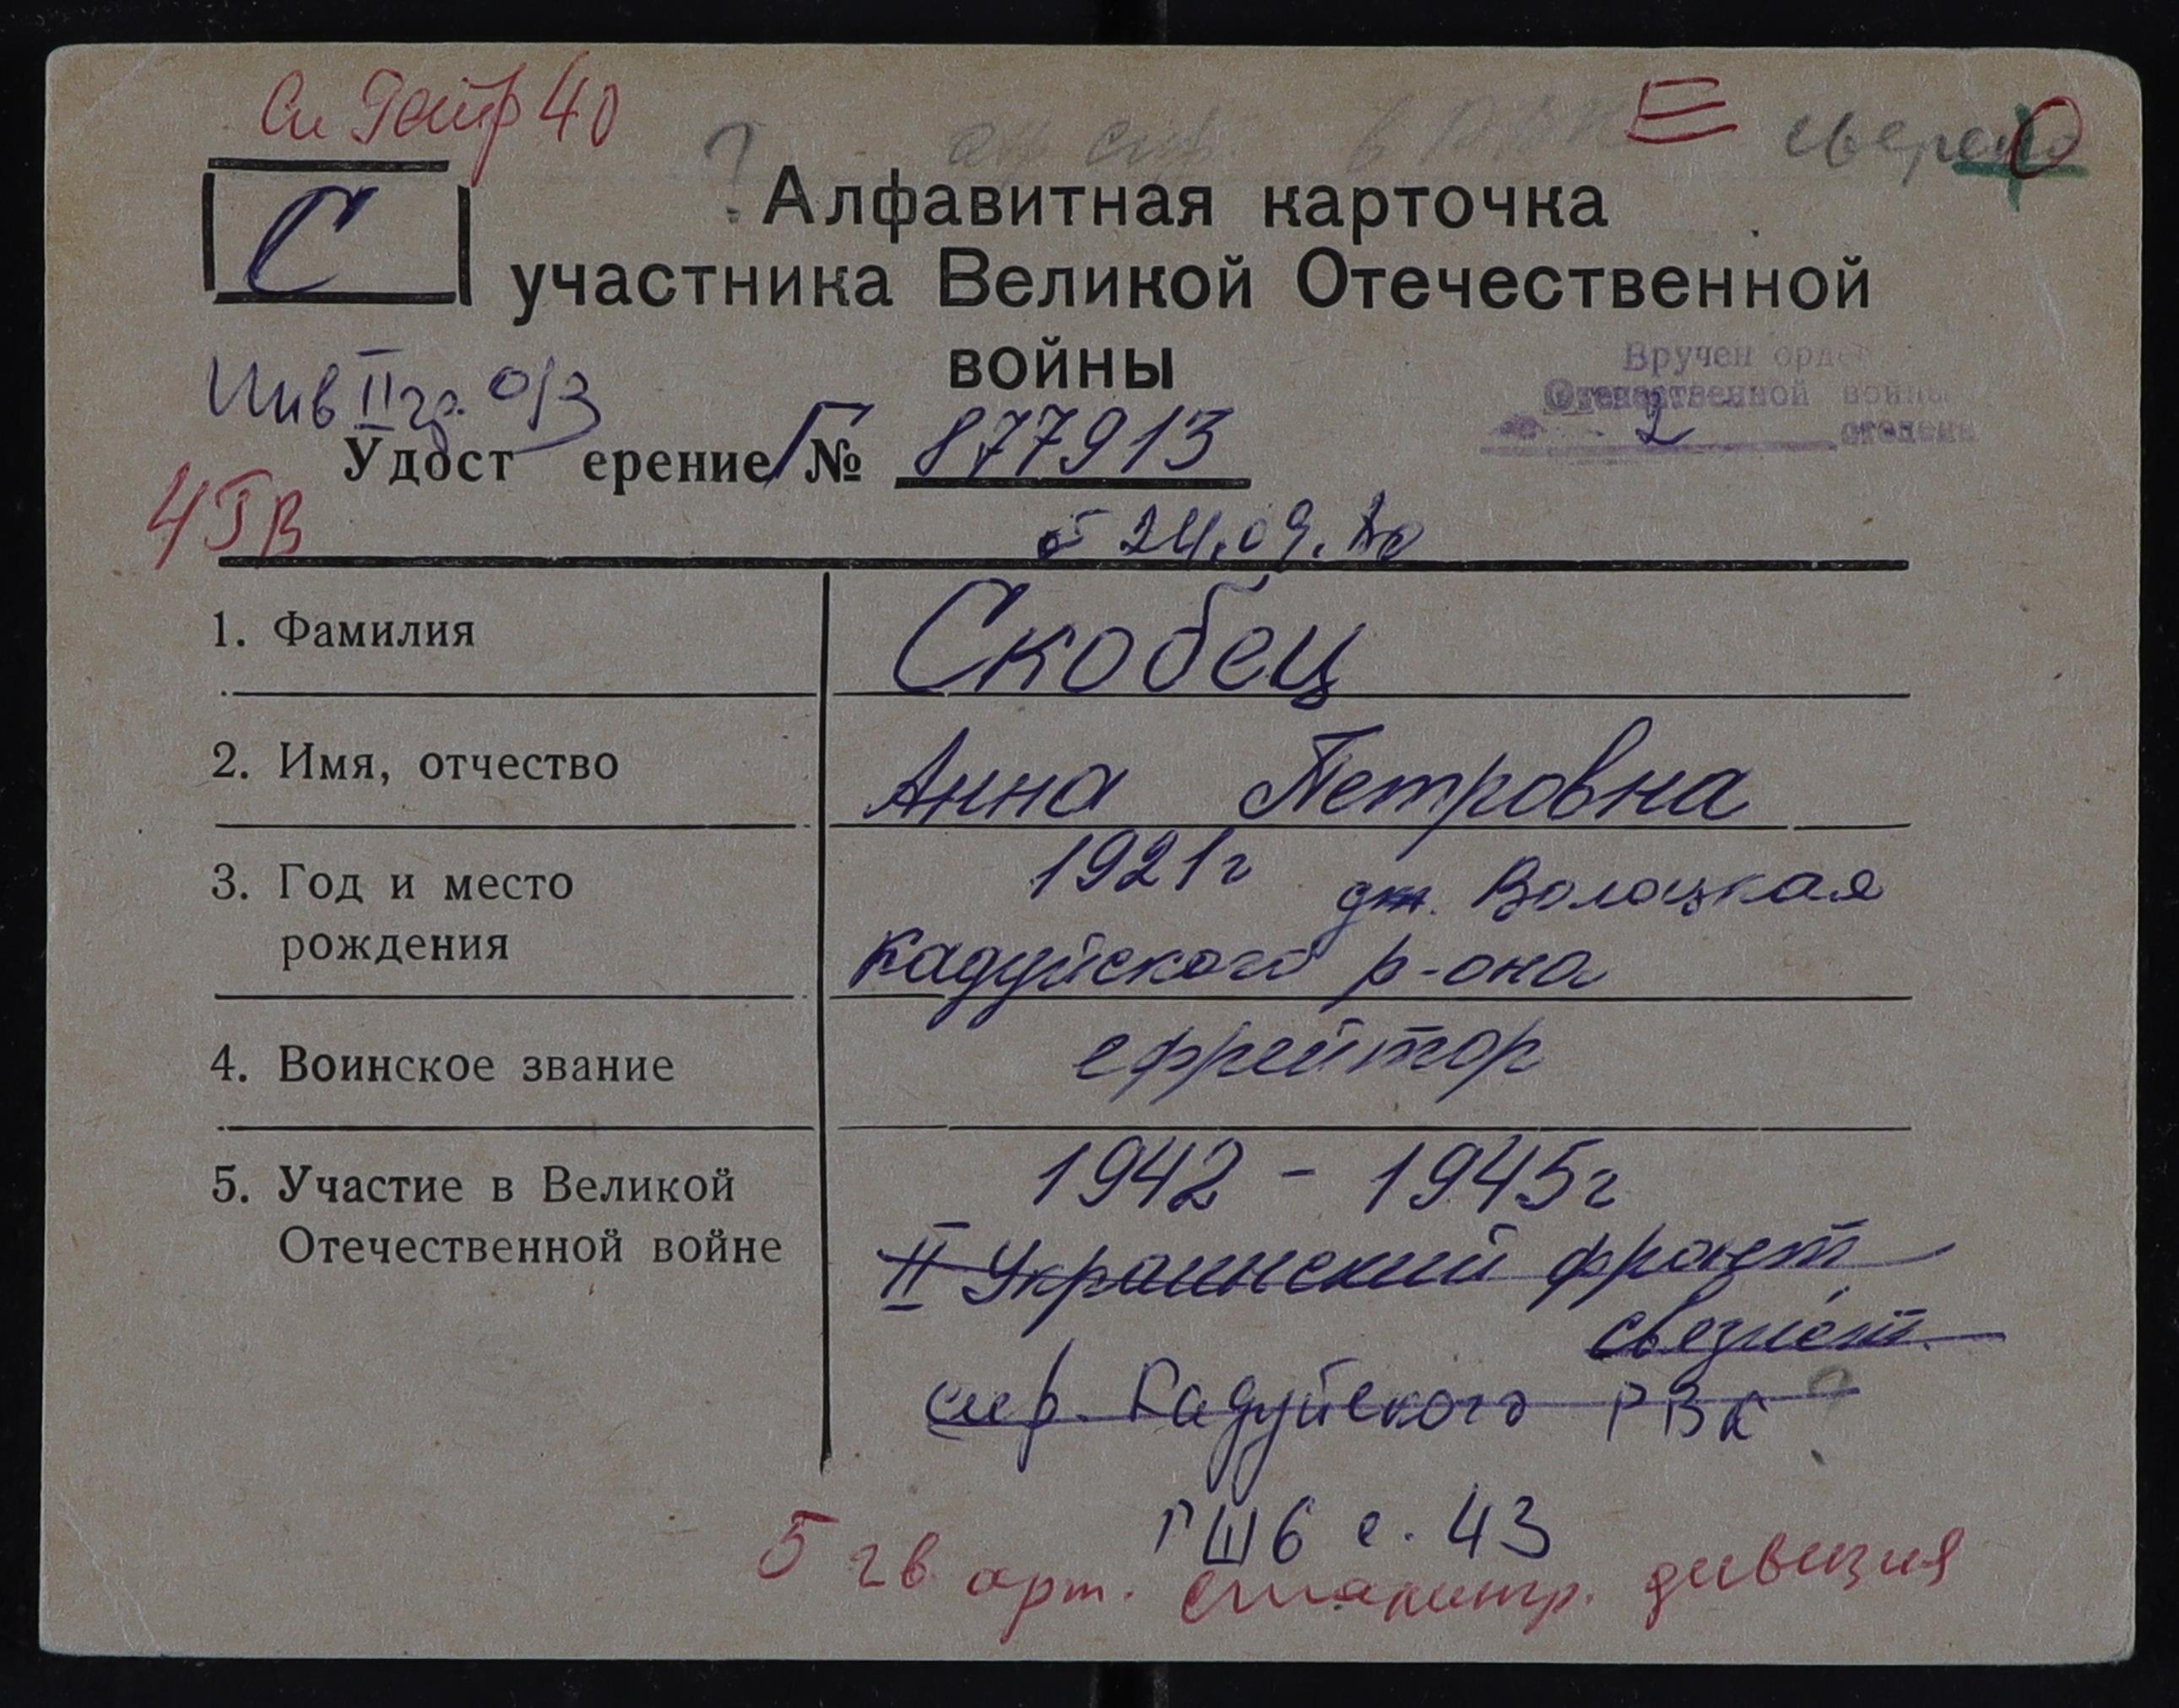 40
Е сверено
С
Алфавитная карточка
участника Великой Отечественной
войны
Инв II гр. О/З
Вручен орде
Отечественной войны
2 степени
Удост ерение № 877913
4 ГВ
от 24.09.80
1. Фамилия Скобец
2. Имя, отчество Анна Петровна
3. Год и место 1921г д. Волоцкая
рождения Кадуйского р-она
4. Воинское звание ефрейтор
5. Участие в Великой 1942 - 1945г
Отечественной войне II Украинский фронт
связист
Кадуйского РВК ?
ГШ6 с. 43
5 гв арт. дивизия